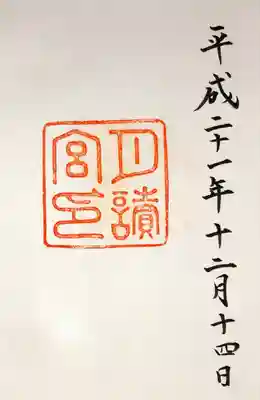 平成二十一年十二月十四日
月讀
宮印